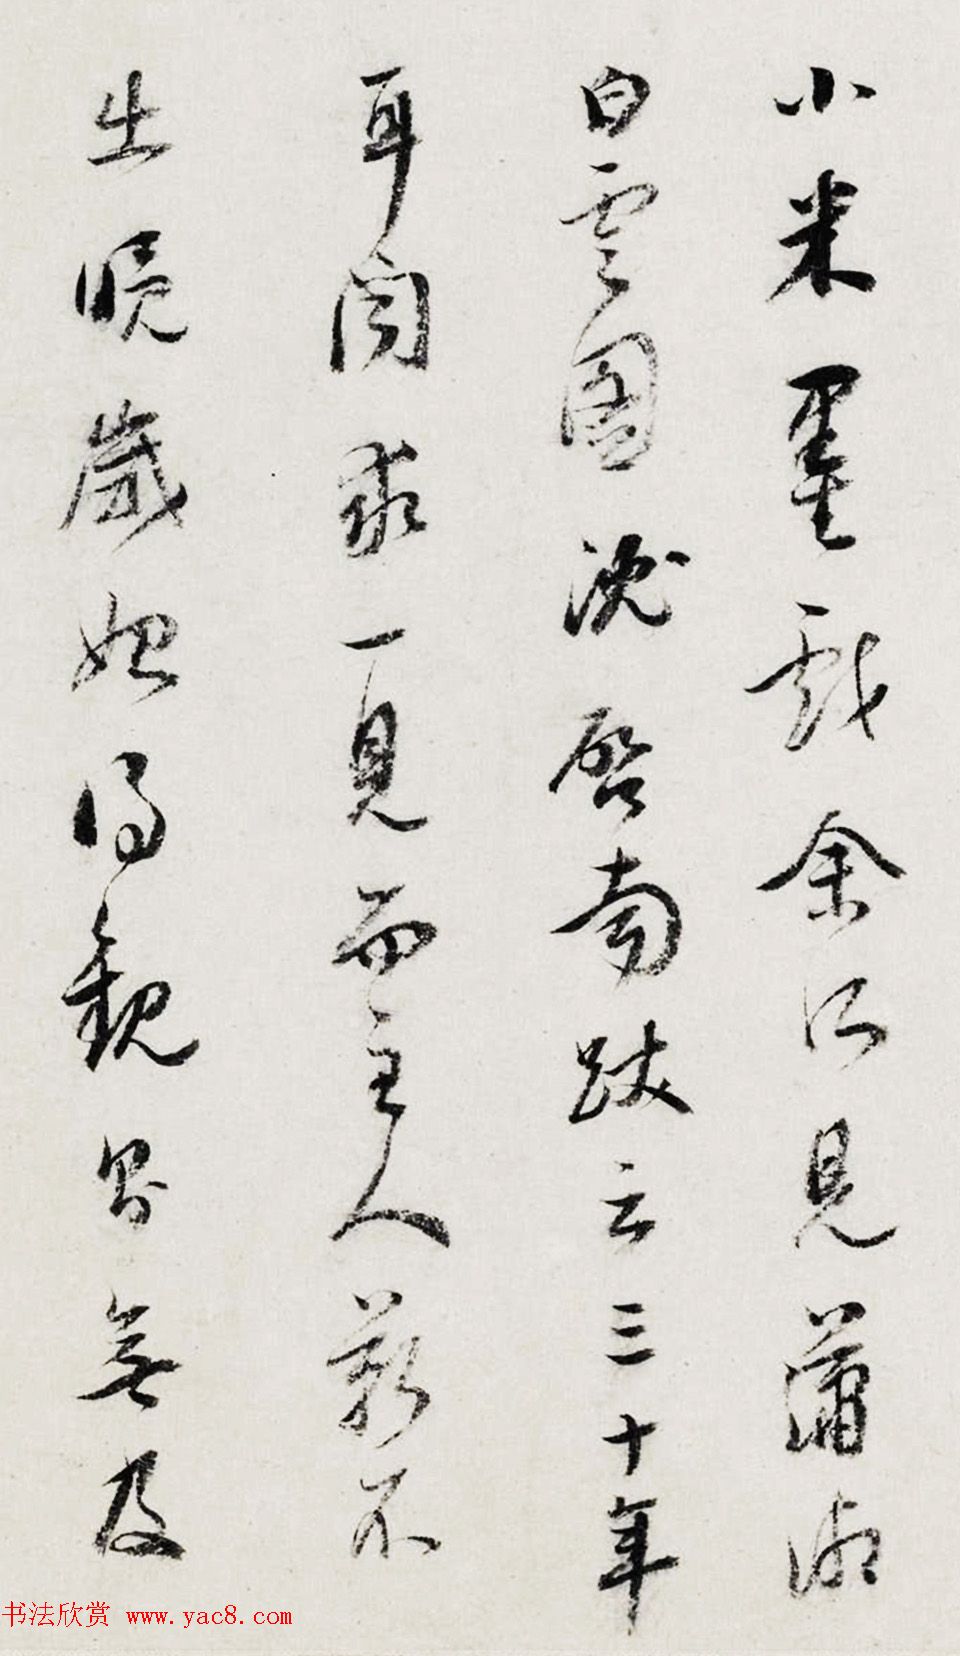 小米墨戲余所見瀟湘
白雲圖沈啓南跋云三十年
耳聞求一見而主人靳不
出晚歲始得觀
無及
书法欣赏 www.yac8.com